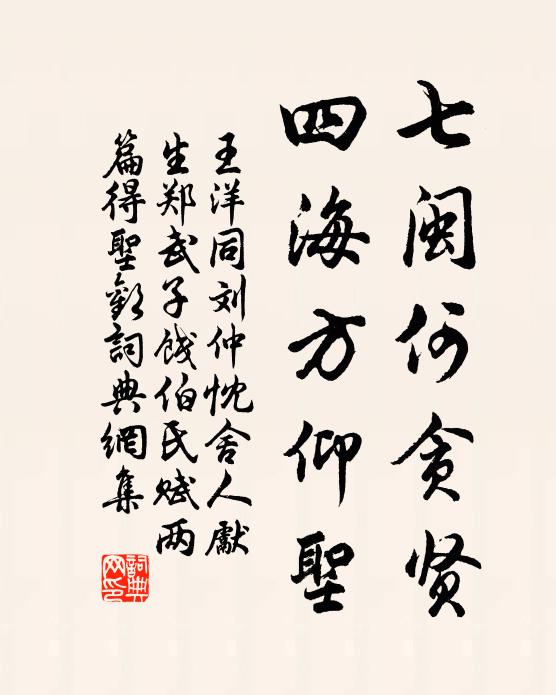 七闽何贪贤
四海方仰聖
王洋同刘仲忱舍人獻
生郑武子饯伯氏赋两
篇得聖歡詞典網集
詞典网印